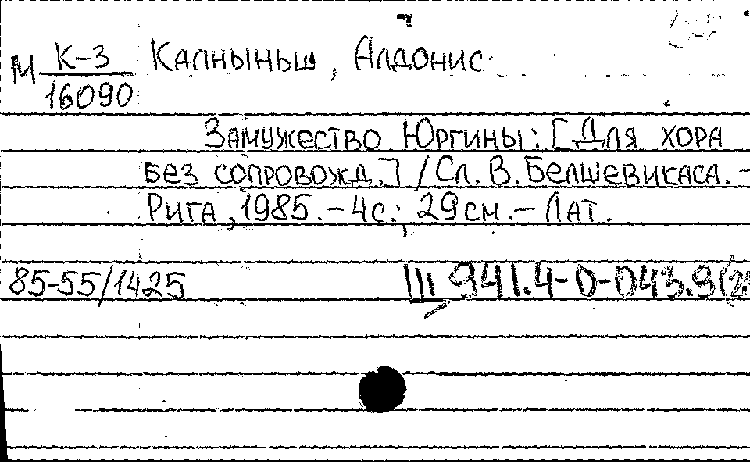 М К-3 Калныньш, Алдонис
16090
Замужество Юргины: [Для хора
без сопровожд.] / Сл. В. Белшевикаса. -
Рига, 1985. - 4с.; 29см. - Лат.
85-55/1425 III 941.4-0-043.9(2